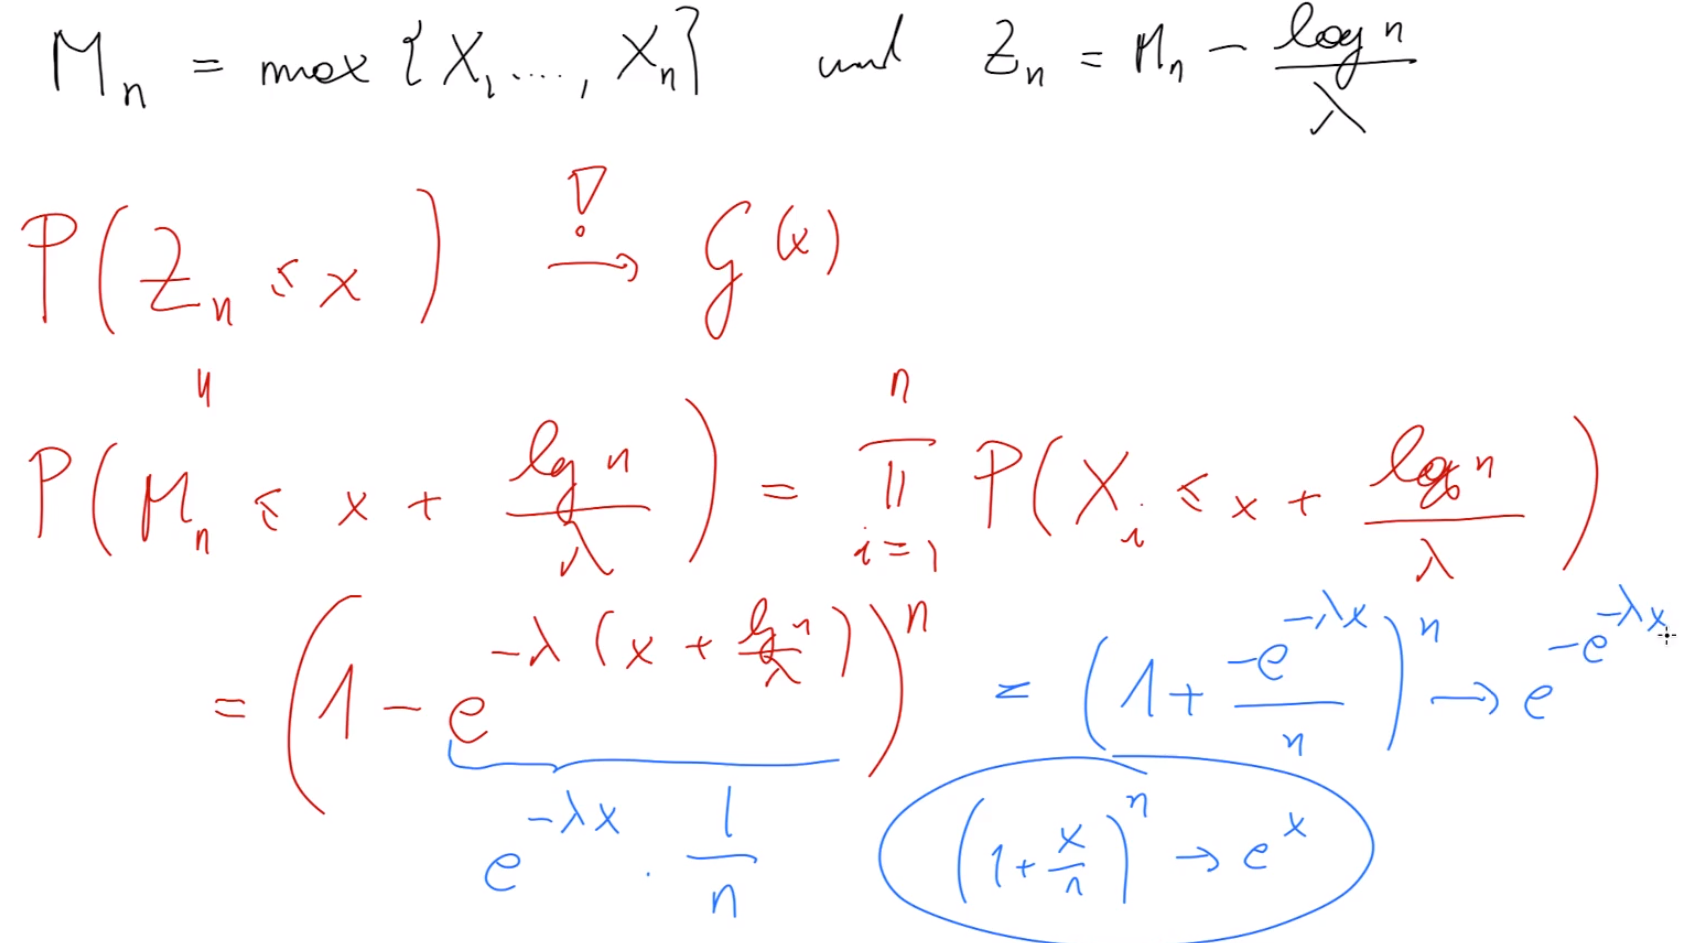 Mₙ = max {X₁, ...., Xₙ} und Zₙ = Mₙ − log n / λ
P(Zₙ ≤ x) →^! G(x)
"
P(Mₙ ≤ x + log n / λ) = ∏_{i=1}^{n} P(X_i ≤ x + log n / λ)
= (1 − e^{−λ(x + log n / λ)})ⁿ = (1 + −e^{−λx} / n)ⁿ → e^{−e^{−λx}}
e^{−λx} · 1/n
(1 + x/n)ⁿ → eˣ